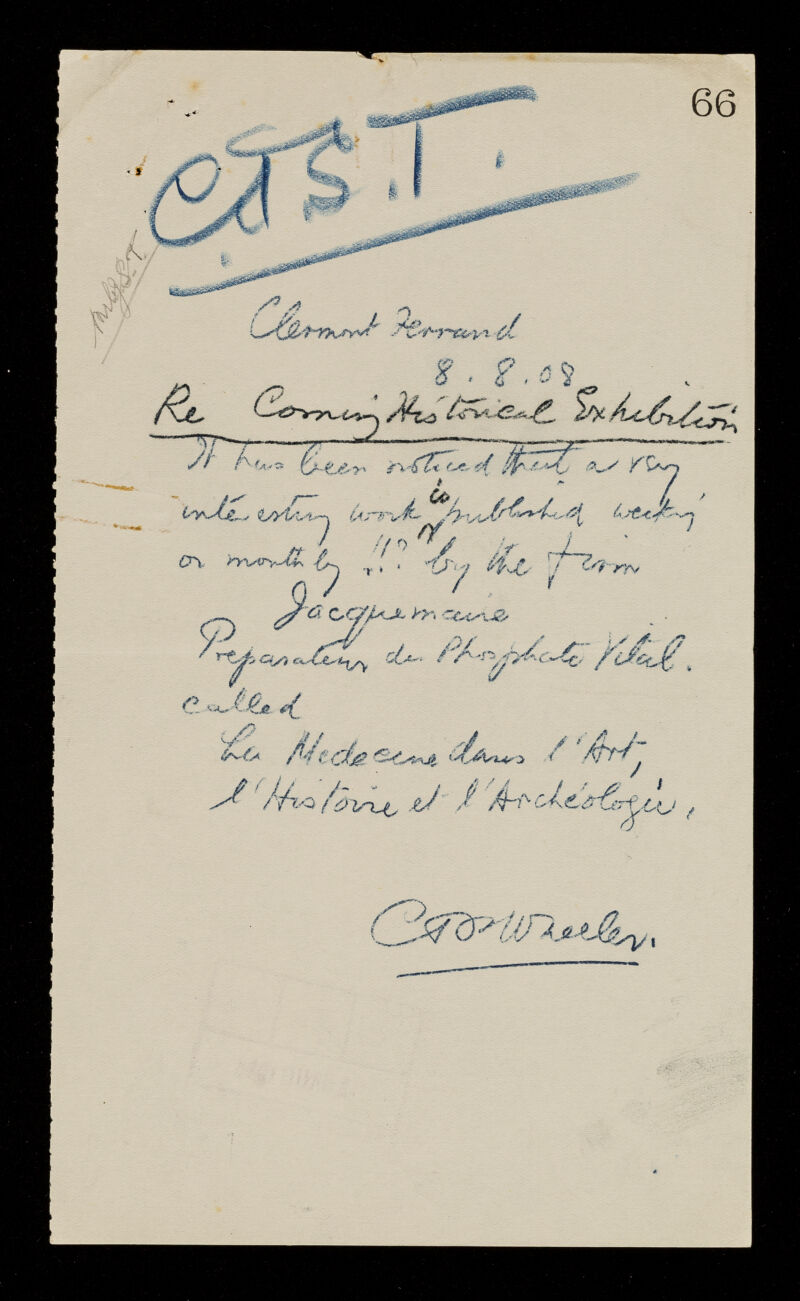 66
C.J.S.T.
Mr C.J.S.T.
Clermont Ferrand
8.8.08
Re Coming Historical Exhibition
It has been noticed that a very
interesting work is published weekly
or monthly !!? by the firm
Jacquemaire
Preparateur du Phosphate Vital.
called
La Medecine dans l'Art,
l'Histoire et l'Archéologie.
Wheeler.